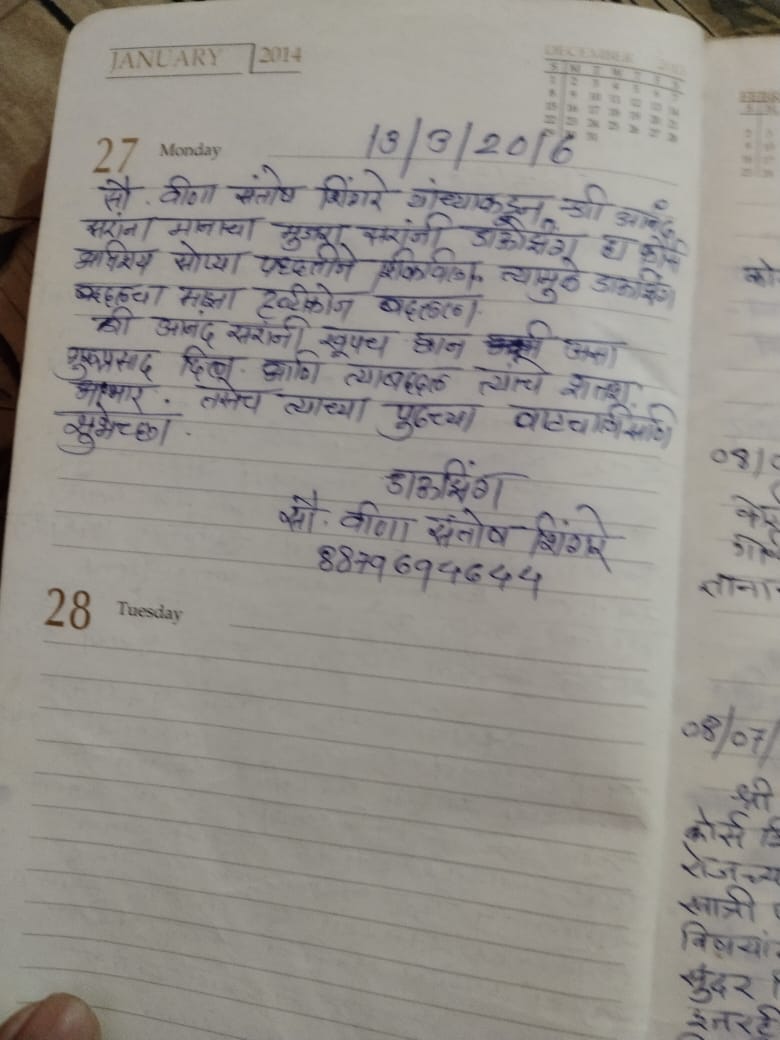 JANUARY 2014
DECEMBER
27 Monday
13/3/2016
सौ. वीणा संतोष शिंगरे यांच्याकडून श्री आनंद
सरांना मानाचा मुजरा सरांनी डाऊझिंग हा कोर्स
अतिशय सोप्या पध्दतीने शिकविला. त्यामुळे डाऊझिंग
बद्दलचा माझा दृष्टीकोन बदलला.
श्री आनंद सरांनी खूपच छान असा
गुरुप्रसाद दिला. आणि त्याबद्दल त्यांचे शतशः
आभार. तसेच त्यांच्या पुढच्या वाटचालीसाठी
शुभेच्छा.
डाऊझिंग
सौ. वीणा संतोष शिंगरे
8879694644
28 Tuesday
08/07/
श्री
कोर्स
रोजच्या
खात्री
सुंदर